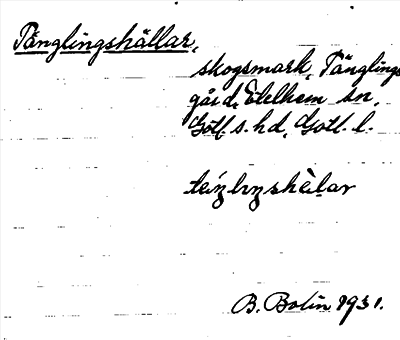 Tänglingshällar,
skogsmark, Tänglings
gård, Etelhem sn,
Gotl. s. hd, Gotl. l.
B. Bolin 1931.